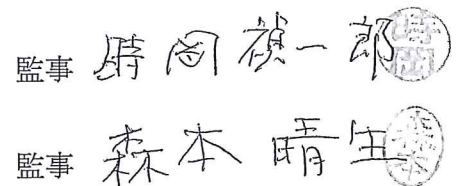 監事 時岡禎一郎
監事 森本晴生